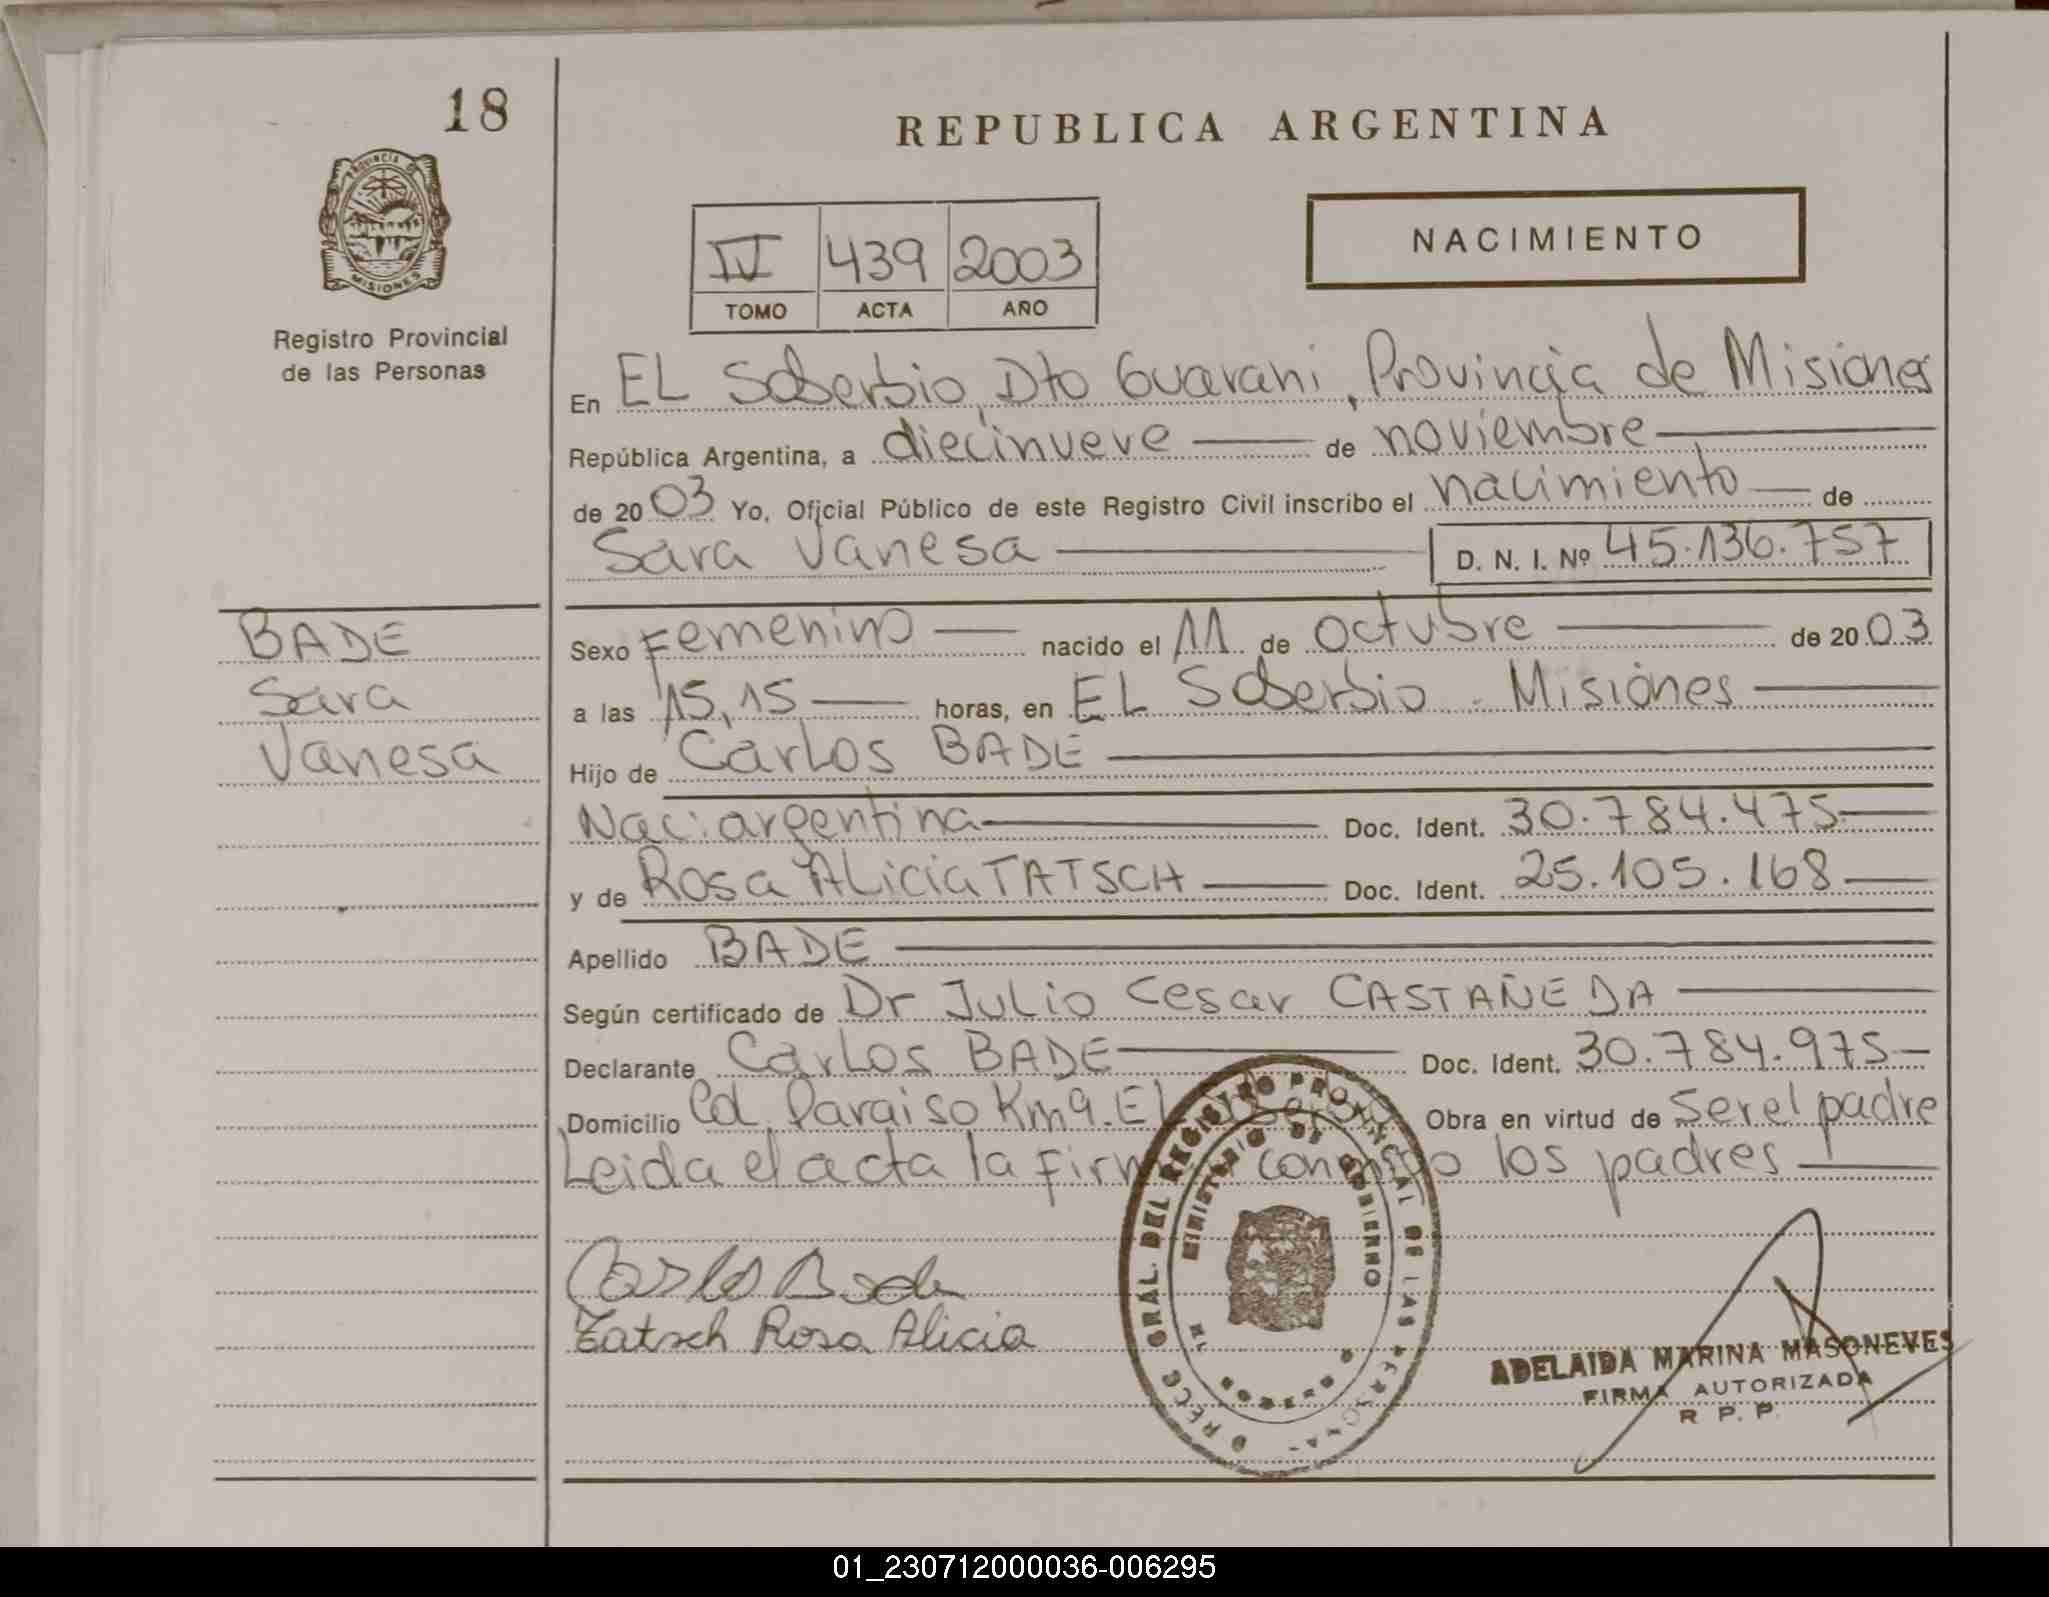 18
PROVINCIA DE
MISIONES
Registro Provincial
de las Personas
REPUBLICA ARGENTINA
NACIMIENTO
IV 439 2003
TOMO ACTA AÑO
En EL Soberbio, Dto Guarani, Provincia de Misiones
República Argentina, a diecinueve de noviembre
de 2003 Yo, Oficial Público de este Registro Civil inscribo el nacimiento de
Sara Vanesa D. N. I. Nº 45.136.757
BADE
Sara
Vanesa
Sexo Femenino nacido el 11 de octubre de 2003
a las 15,15 horas, en EL Soberbio - Misiones
Hijo de Carlos BADE
Nac. argentina Doc. Ident. 30.784.475
y de Rosa ALicia TATSCH Doc. Ident. 25.105.168
Apellido BADE
Según certificado de Dr JuLio Cesar CASTAÑEDA
Declarante CarLos BADE Doc. Ident. 30.784.975
Domicilio Cd. Paraiso Km 9. El Obra en virtud de ser el padre
Leida el acta la firman conmigo los padres
Carlos Bade
Tatsch Rosa Alicia
GRAL. DEL REGISTRO PROVINCIAL DE LAS
MINISTERIO DE GOBIERNO
ADELAIDA MARINA MASONEVES
FIRMA AUTORIZADA
R P. P.
01_230712000036-006295